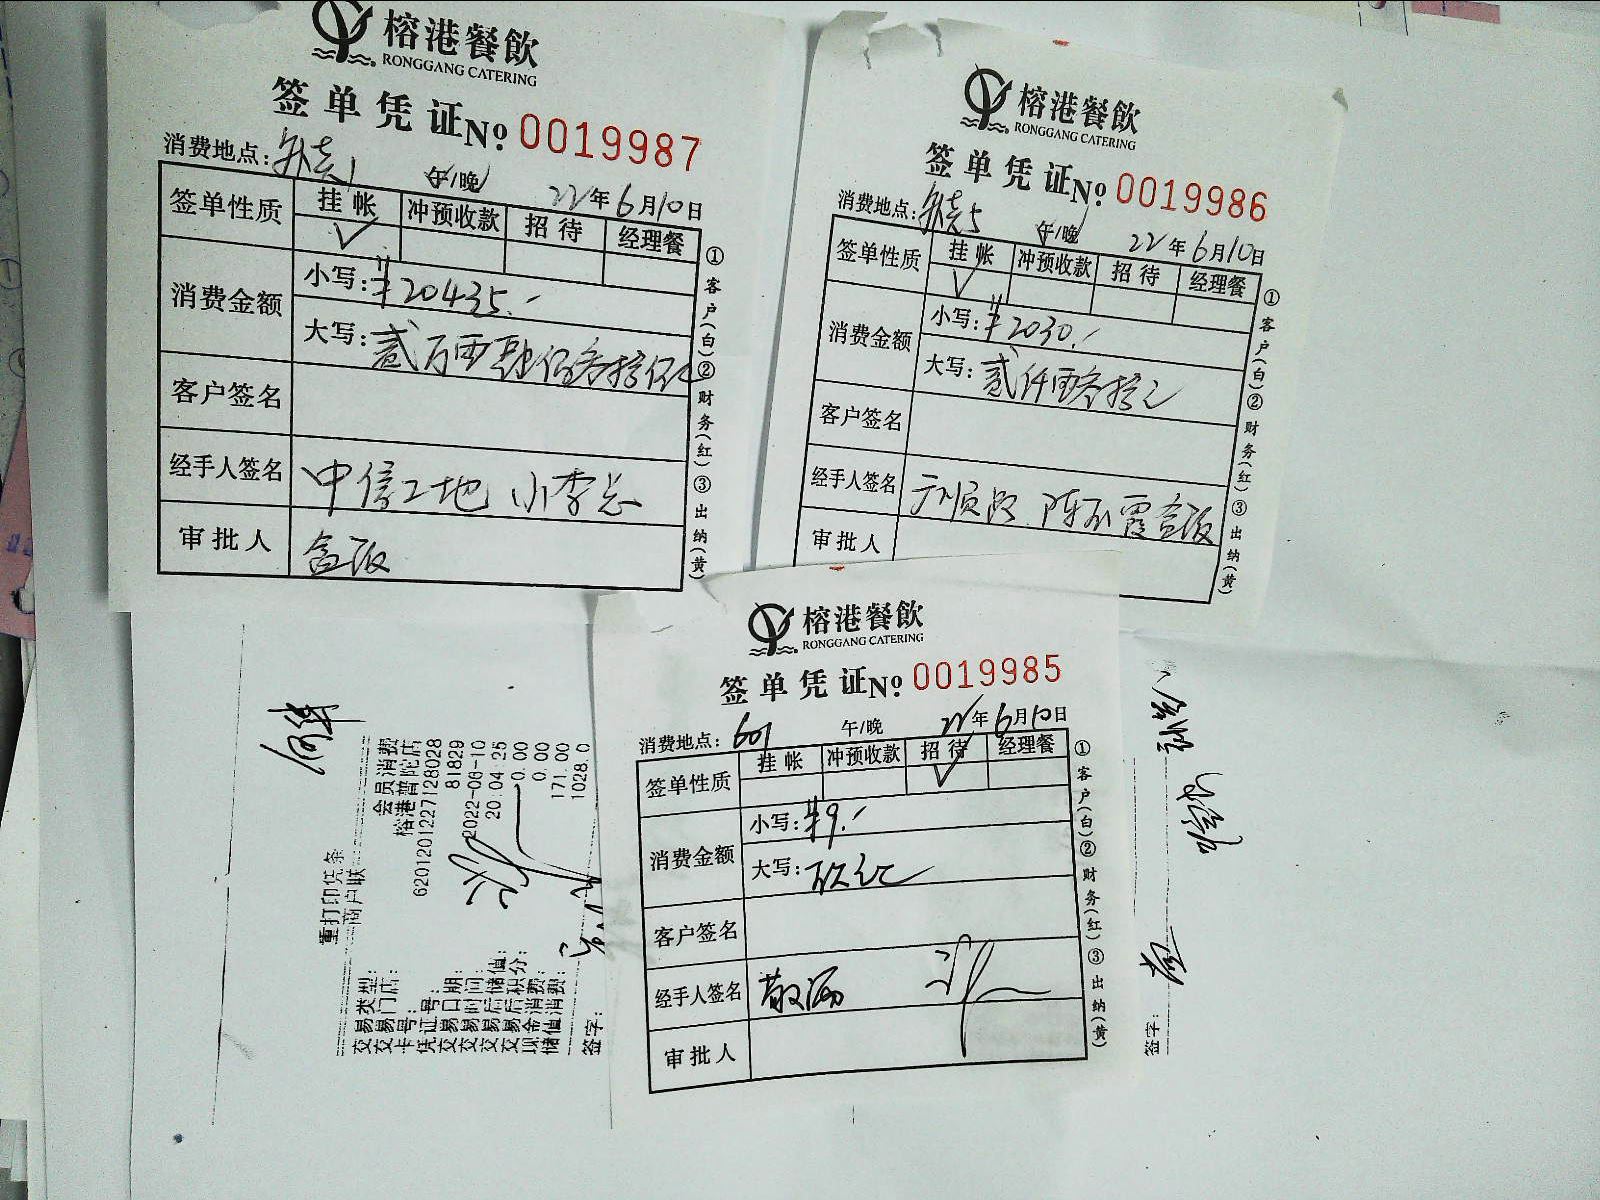 榕港餐飲
RONGGANG CATERING
签单凭证No. 0019987
消费地点: 午/晚 22年6月10日
签单性质 挂帐 冲预收款 招待 经理餐
消费金额 小写: ¥20435.-
大写: 贰万零肆佰叁拾伍元
客户签名
经手人签名 中信工地 小李总
审批人 盒饭
①客户(白)②财务(红)③出纳(黄)
榕港餐飲
RONGGANG CATERING
签单凭证No. 0019986
消费地点: 午/晚 22年6月10日
签单性质 挂帐 冲预收款 招待 经理餐
消费金额 小写: ¥2030.-
大写: 贰仟零叁拾元
客户签名
经手人签名 陈玉霞盒饭
审批人
①客户(白)②财务(红)③出纳(黄)
榕港餐飲
RONGGANG CATERING
签单凭证No. 0019985
消费地点: 601 午/晚 22年6月10日
签单性质 挂帐 冲预收款 招待 经理餐
消费金额 小写: ¥9.-
大写: 玖元
客户签名
经手人签名
审批人
①客户(白)②财务(红)③出纳(黄)
重打印凭条
商户联
交易类型: 会员消费
交易门店: 榕港普陀店
卡号: 6201201227128028
凭证号: 81829
交易日期: 2022-06-10
交易时间: 20:04:25
交易后储值: 0.00
交易后积分: 0.00
现金消费: 171.00
储值消费: 1028.0
签字:
签字: